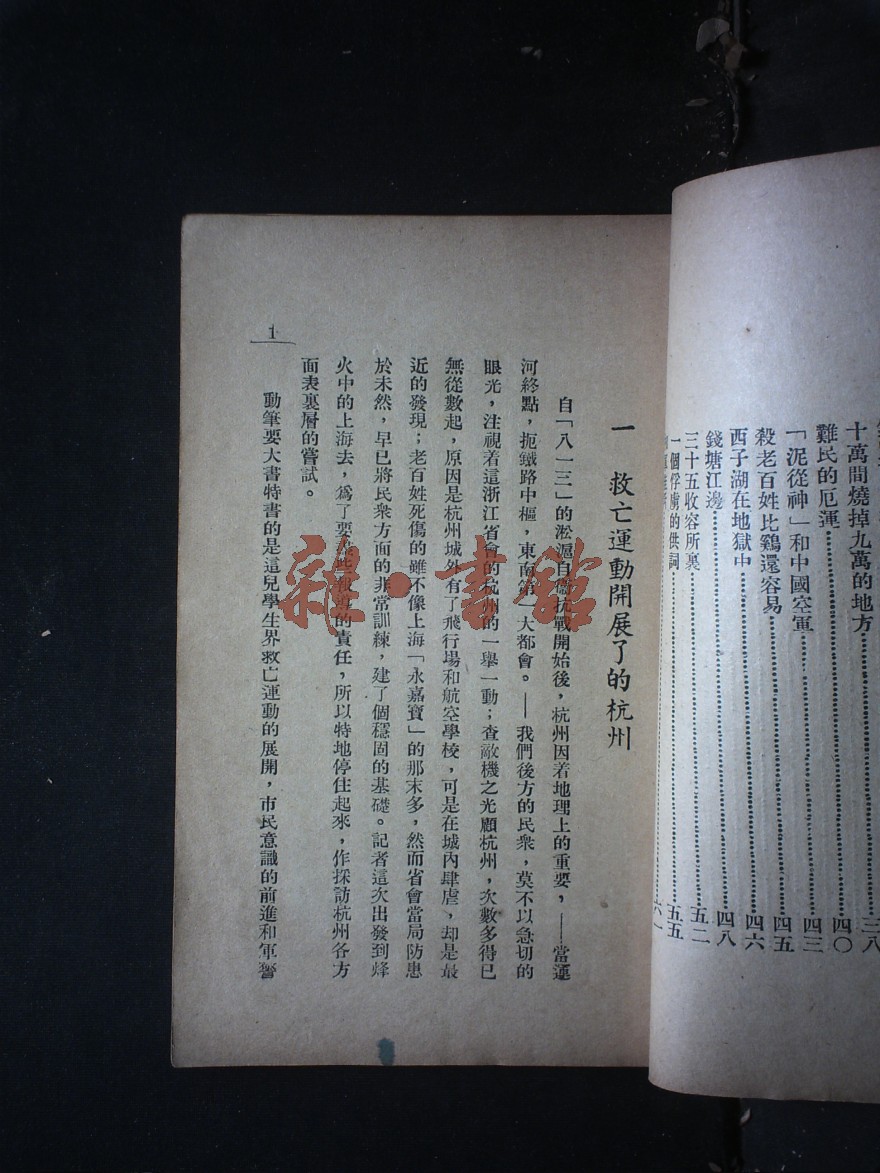 十萬間燒掉九萬的地方
三八
難民的厄運
四〇
「泥從神」和中國空軍
四三
殺老百姓比鷄還容易
四五
西子湖在地獄中
四六
錢塘江邊
四八
三十五收容所裏
五二
一個俘虜的供詞
五五
一 救亡運動開展了的杭州
自「八一三」的淞滬自衞抗戰開始後，杭州因着地理上的重要，——當運
河終點，扼鐵路中樞，東南第一大都會。——我們後方的民衆，莫不以急切的
眼光，注視着這浙江省會的杭州的一舉一動；查敵機之光顧杭州，次數多得已
無從數起，原因是杭州城外有了飛行場和航空學校，可是在城內肆虐，却是最
近的發現；老百姓死傷的雖不像上海「永嘉寶」的那末多，然而省會當局防患
於未然，早已將民衆方面的非常訓練，建了個穩固的基礎。記者這次出發到烽
火中的上海去，爲了要 些報導的責任，所以特地停住起來，作採訪杭州各方
面表裏層的嘗試。
動筆要大書特書的是這兒學生界救亡運動的展開，市民意識的前進和軍警
1
雜·書館